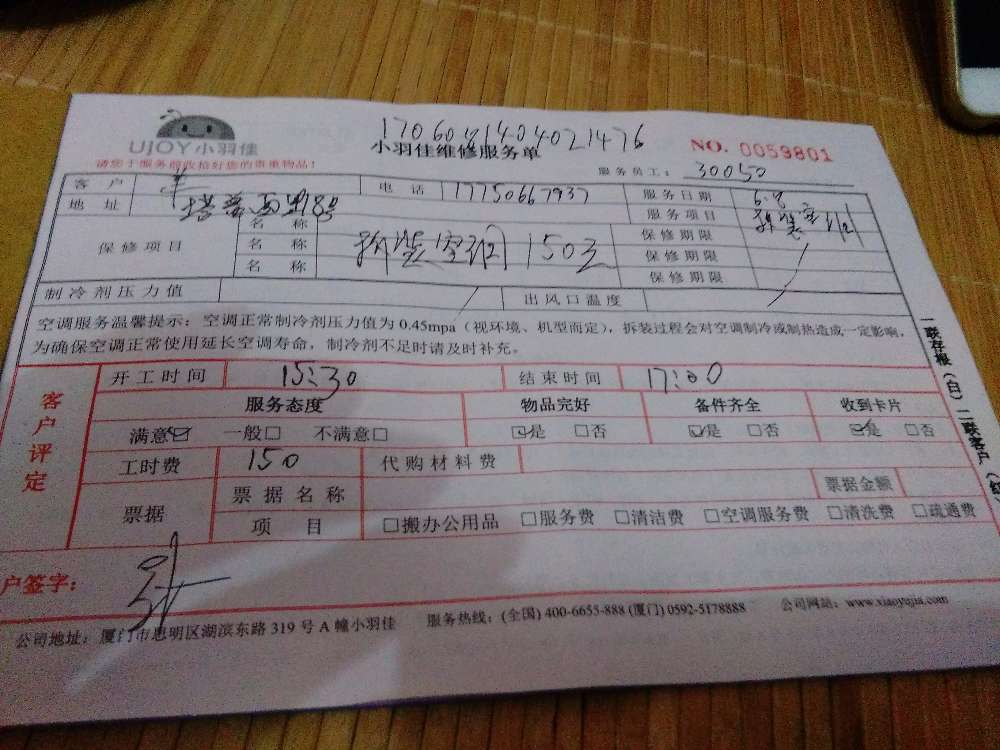 UJOY小羽佳
请您于服务前收拾好您的贵重物品!
小羽佳维修服务单
NO. 0059801
服务员工: 30050
客户
电话 17750667937
服务日期 6.8
地址
服务项目 拆装空调
保修项目
名称
名称 拆装空调 150元
名称
保修期限
保修期限
保修期限
制冷剂压力值
出风口温度
空调服务温馨提示:空调正常制冷剂压力值为 0.45mpa(视环境、机型而定),拆装过程会对空调制冷或制热造成一定影响,
为确保空调正常使用延长空调寿命,制冷剂不足时请及时补充。
客户评定
开工时间 15:30 结束时间 17:00
服务态度 物品完好 备件齐全 收到卡片
满意☑ 一般□ 不满意□ ☑是 □否 ☑是 □否 ☑是 □否
工时费 150 代购材料费
票据 票据名称 票据金额
项目 □搬办公用品 □服务费 □清洁费 □空调服务费 □清洗费 □疏通费
户签字:
公司地址:厦门市思明区湖滨东路 319 号 A 幢小羽佳 服务热线:(全国) 400-6655-888 (厦门) 0592-5178888 公司网站:www.xiaoyujia.com
一联存根(白)二联客户(红